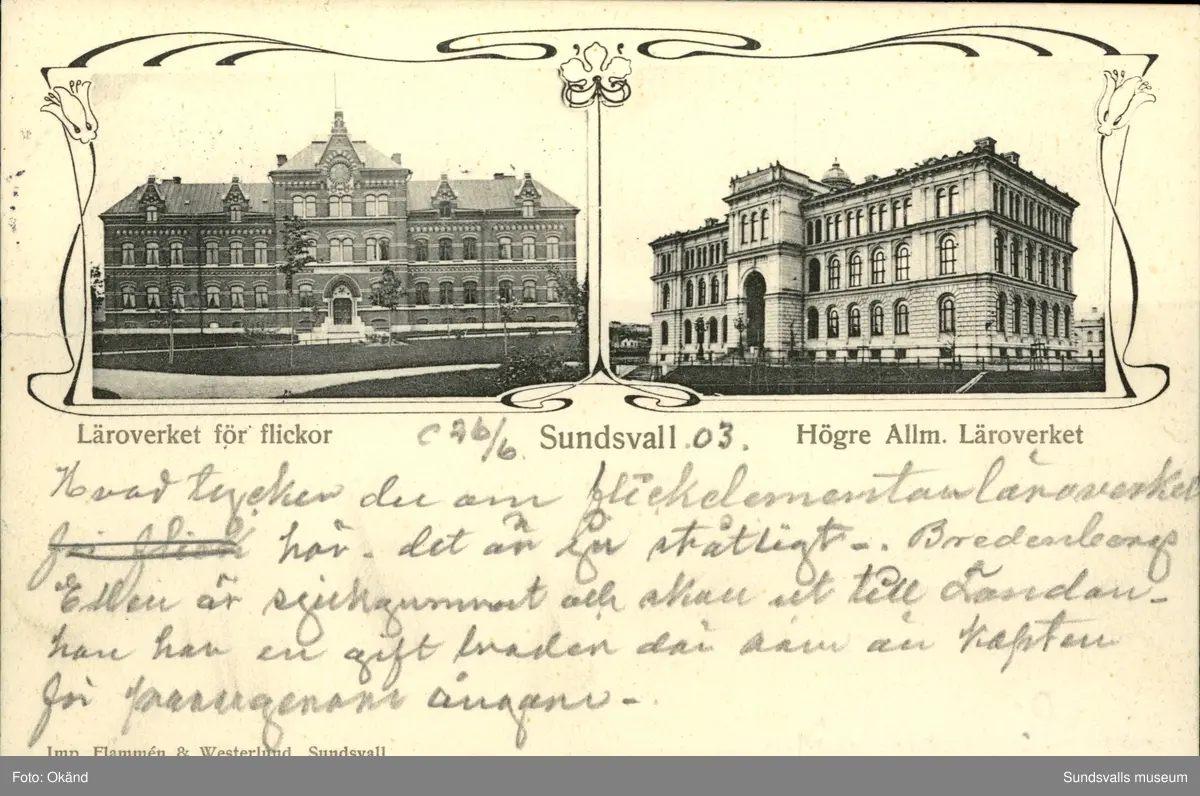 Läroverket för flickor
26/6 Sundsvall .03.
Högre Allm. Läroverket
Hvad tycker du om flickelementarläroverket
för flick här - det är ju ståtligt -. Bredenbergs
Ellen är sjukgymnast och skall ut till London -
hon har en gift broder där som är kapten
för ångare -
Imp. Flammén & Westerlund, Sundsvall
Foto: Okänd
Sundsvalls museum